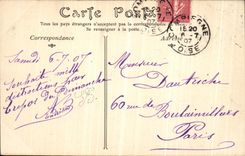 Carte Postale
Tous les pays étrangers n'acceptent pas la correspondance
Se renseigner à la poste
Correspondance
Samedi 6.7.07
Souhaite mille
distractions pour
repos du Dimanche
Monsieur
Dautriche
60 rue de Boulainvilliers
Paris
15 20
6 -7
07
OISE